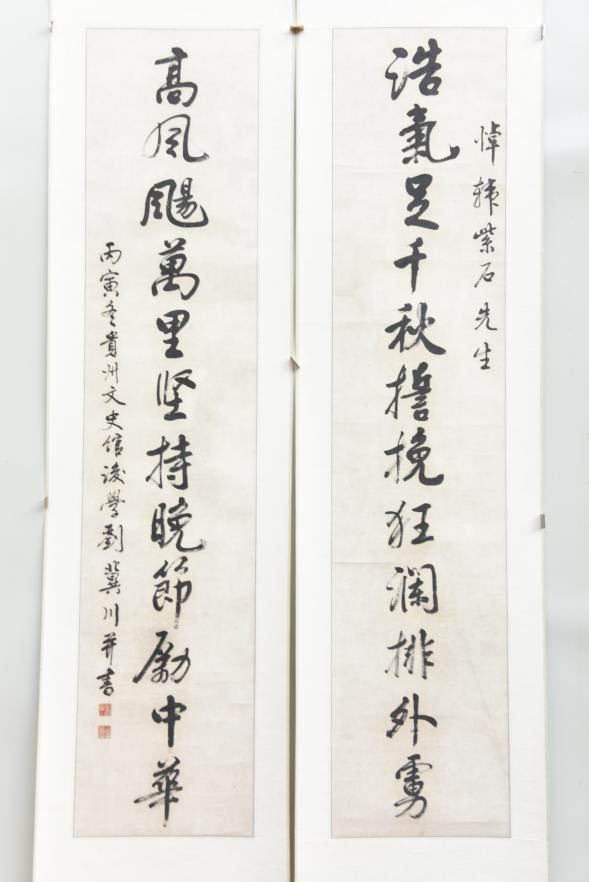 悼韩紫石先生
浩氣足千秋誓挽狂瀾排外虜
高風颺萬里坚持晚節勵中華
丙寅冬貴州文史馆後學劉冀川并書